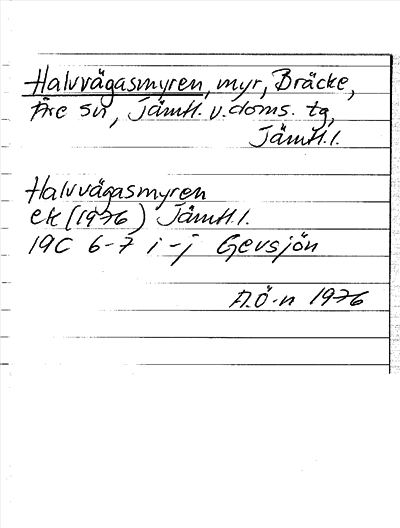 Halvvägasmyren, myr, Bräcke,
Åre sn, Jämtl. v. doms. tg,
Jämtl. l.
Halvvägasmyren
ek (1976) Jämtl. l.
19C 6-7 i-j Gevsjön
A.Ö-n 1976